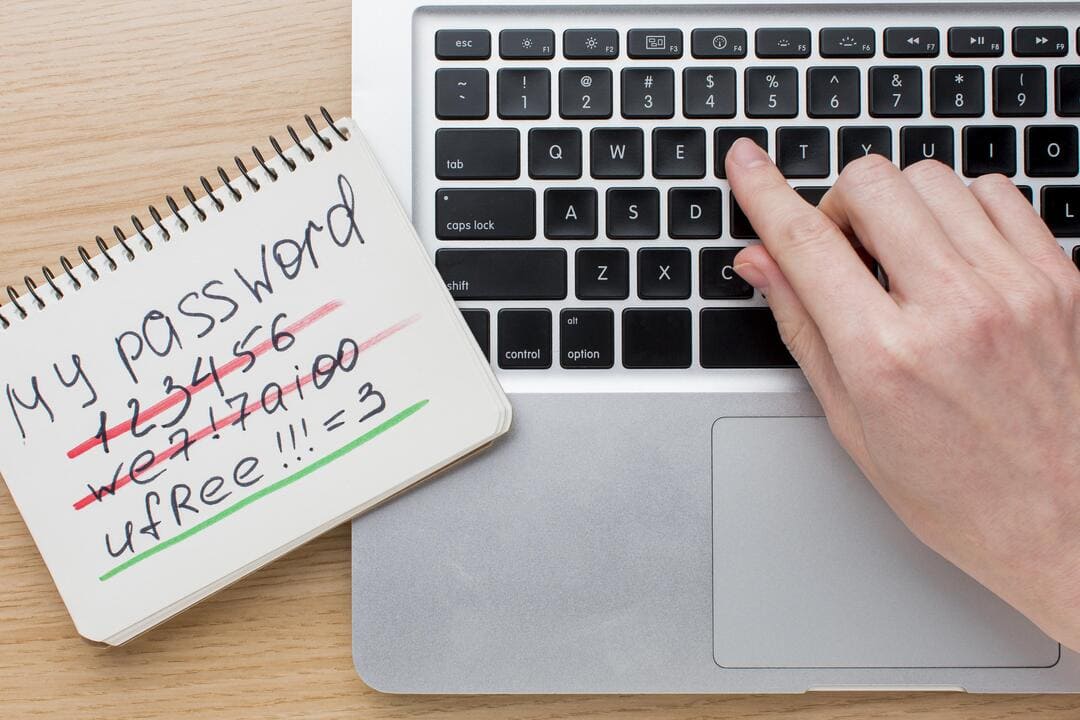 My password
123456
we7!7aioo
ufRee!!!=3
esc F1 F2 F3 F4 F5 F6 F7 F8 F9
~ ` ! 1 @ 2 # 3 $ 4 % 5 ^ 6 & 7 * 8 ( 9
tab Q W E T Y U I O
caps lock A S D L
shift Z X C
control alt option